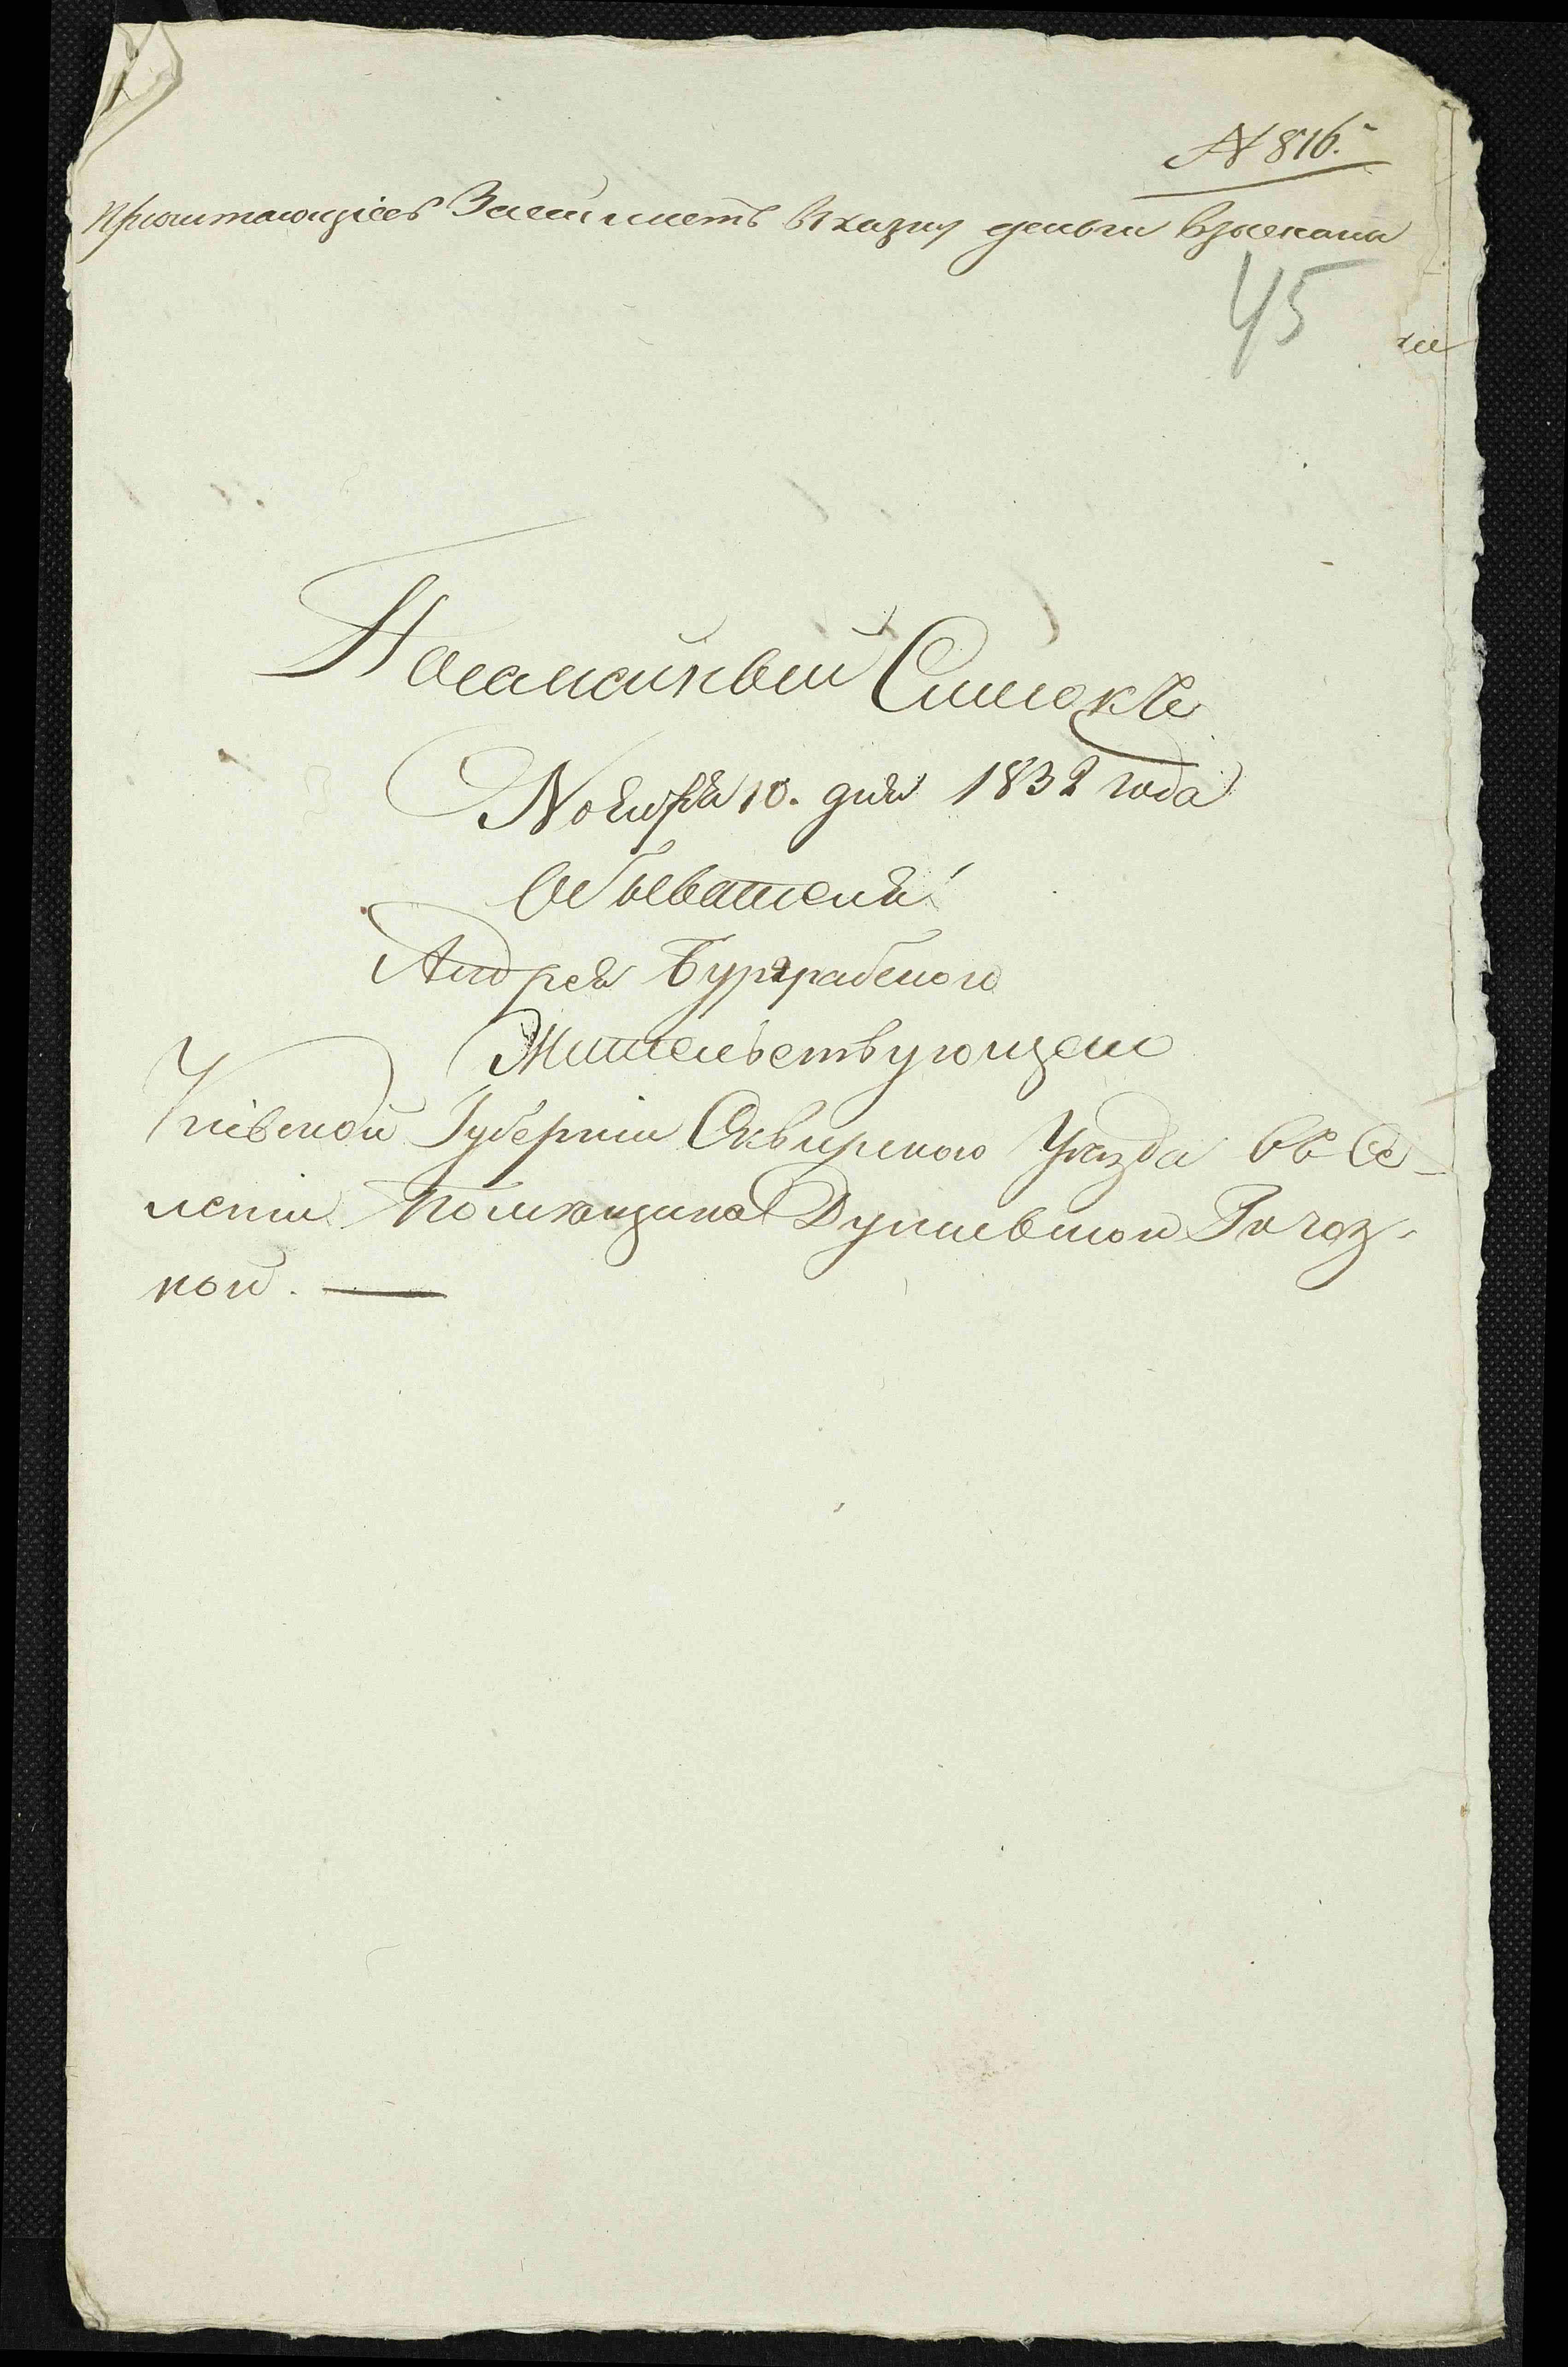 N 816.
причитающіесъ За сей листъ въ казну деньги взысканы
45
Посемейный Списокъ
Ноября 10. дня 1832 года
Обывателя
Андрея Бургграбского
Жительствующаго
Кіевской Губерніи Сквирского Уезда въ Се-
леніи помѣщика
ной.